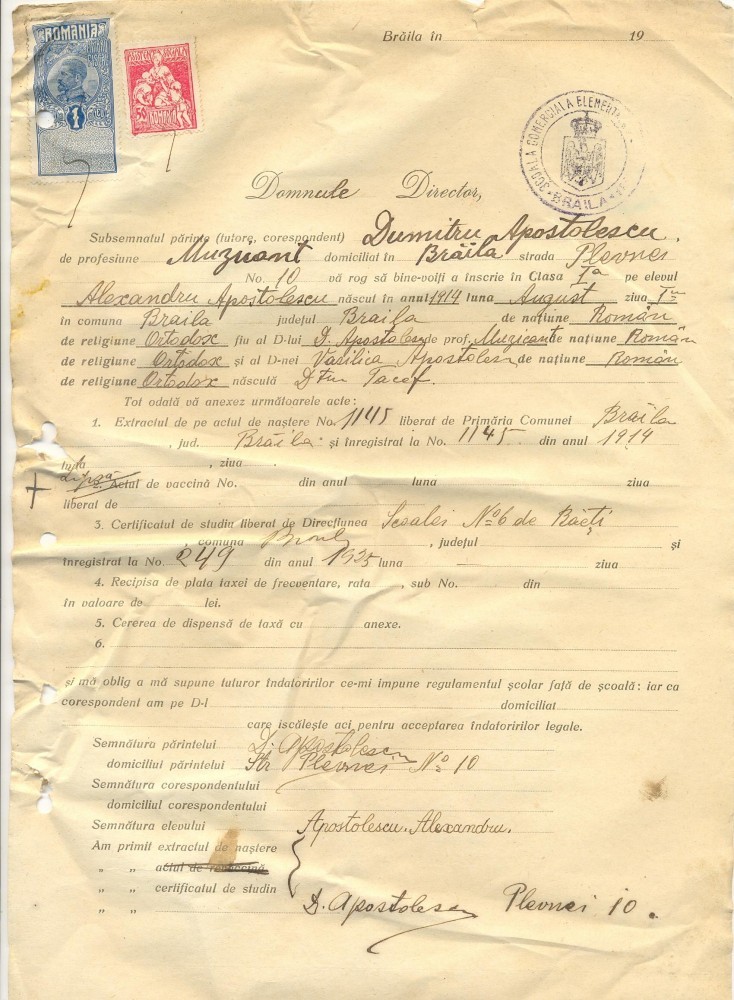 ROMANIA
1
ASISTENȚA SOCIALA
50
ROMANIA
Brăila în 19
ȘCOALA COMERCIALA ELEMENTA
BRAILA
Domnule Director,
Subsemnalul părinte (tutore, corespondent) Dumitru Apostolescu.
de profesiune Muzicant domiciliat în Brăila strada Plevnei
No. 10 vă rog să bine-voiți a înscrie în Clasa Iª pe elevul
Alexandru Apostolescu născut în anul 1914 luna August ziua
în comuna Braila județul Braila de națiune Român
de religiune Ortodox fiu al D-lui D. Apostolescu de prof. Muzicant de națiune Român
de religiune Ortodox și al D-nei Vasilica Apostolescu de națiune Român
de religiune Ortodox născulă
Tot odată vă anexez următoarele acte:
1. Extractul de pe actul de naștere No. 1145 liberat de Primăria Comunei Brăila
, jud. Brăila și înregistrat la No. 1145 din anul 1914
luna , ziua
lipsă Actul de vaccină No. din anul luna ziua
liberat de
3. Certificatul de studiu liberat de Direcțiunea Scoalei No 6 de Băeți
, comuna , județul și
înregistrat la No. 249 din anul 1925 luna ziua
4. Recipisa de plata taxei de frecventare, rata , sub No. din
în valoare de lei.
5. Cererea de dispensă de taxă cu anexe.
6.
și mă oblig a mă supune tuturor îndatoririlor ce-mi impune regulamentul școlar față de școală: iar ca
corespondent am pe D-l domiciliat
care iscălește aci pentru acceptarea îndatoririlor legale.
Semnătura părintelui D. Apostolescu
domiciliul părintelui Str Plevnei No 10
Semnătura corespondentului
domiciliul corespondentului
Semnătura elevului Apostolescu. Alexandru.
Am primit extractul de naștere
„ „ actul de
„ „ certificatul de studin
„ „ D. Apostolescu Plevnei 10.